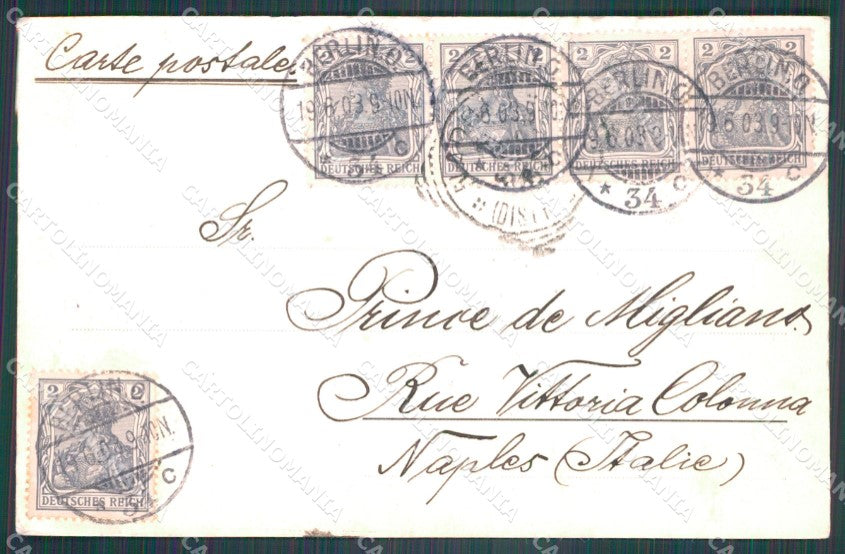 Carte postale
2 2 2 2 2 2
BERLIN.O. BERLIN.O. BERLIN.O. BERLIN.O.
19.6.03.9-10N. 9.6.03.9-10N. 19.6.03.9 19.6.03.9-10N.
DEUTSCHES REICH DEUTSCHES REICH DEUTSCHES REICH
* 34 c * 34 c
(DIST
Sr.
Prince de Migliano.
Rue Vittoria Colonna
Naples (Italie)
2 2
BERLIN
DEUTSCHES REICH
c
CARTOLINOMANIA